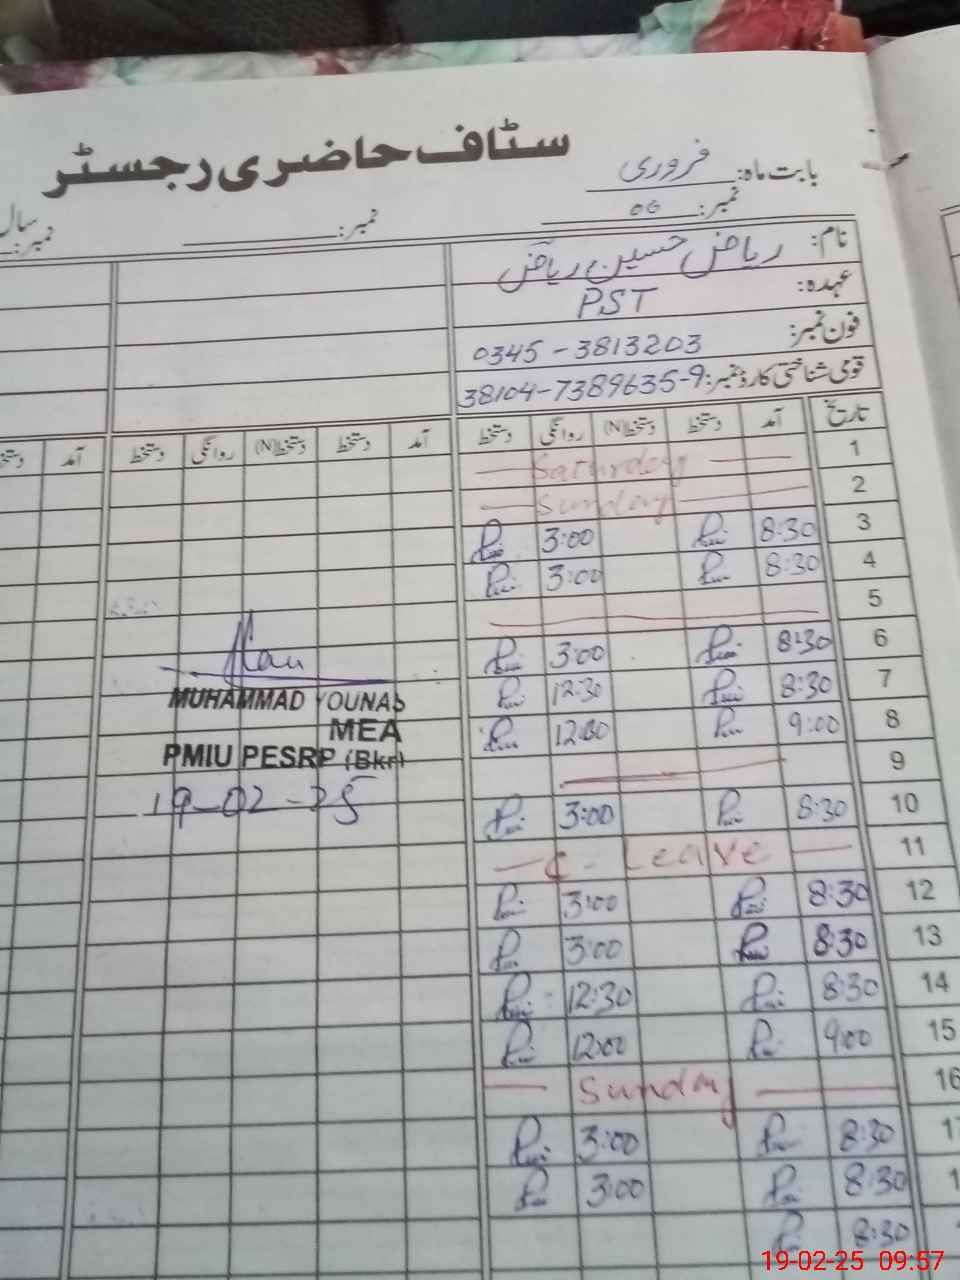 سٹاف حاضری رجسٹر
بابت ماہ: فروری
نمبر: 06 نمبر: سال نمبر:
نام: ریاض حسین ریاض
عہدہ: PST
فون نمبر: 0345-3813203
قومی شناختی کارڈ نمبر: 38104-7389635-9
تاریخ آمد دستخط دستخط(N) روانگی دستخط آمد دستخط دستخط(N) روانگی دستخط آمد
1 Saturday
2 Sunday
3 8:30 3:00
4 8:30 3:00
5
6 8:30 3:00
7 8:30 12:30
8 9:00 12:30
9
10 8:30 3:00
11 C-Leave
12 8:30 3:00
13 8:30 3:00
14 8:30 12:30
15 9:00 12:00
16 Sunday
17 8:30 3:00
8:30 3:00
8:30
MUHAMMAD YOUNAS
MEA
PMIU PESRP (Bkr)
19-02-25
19-02-25 09:57